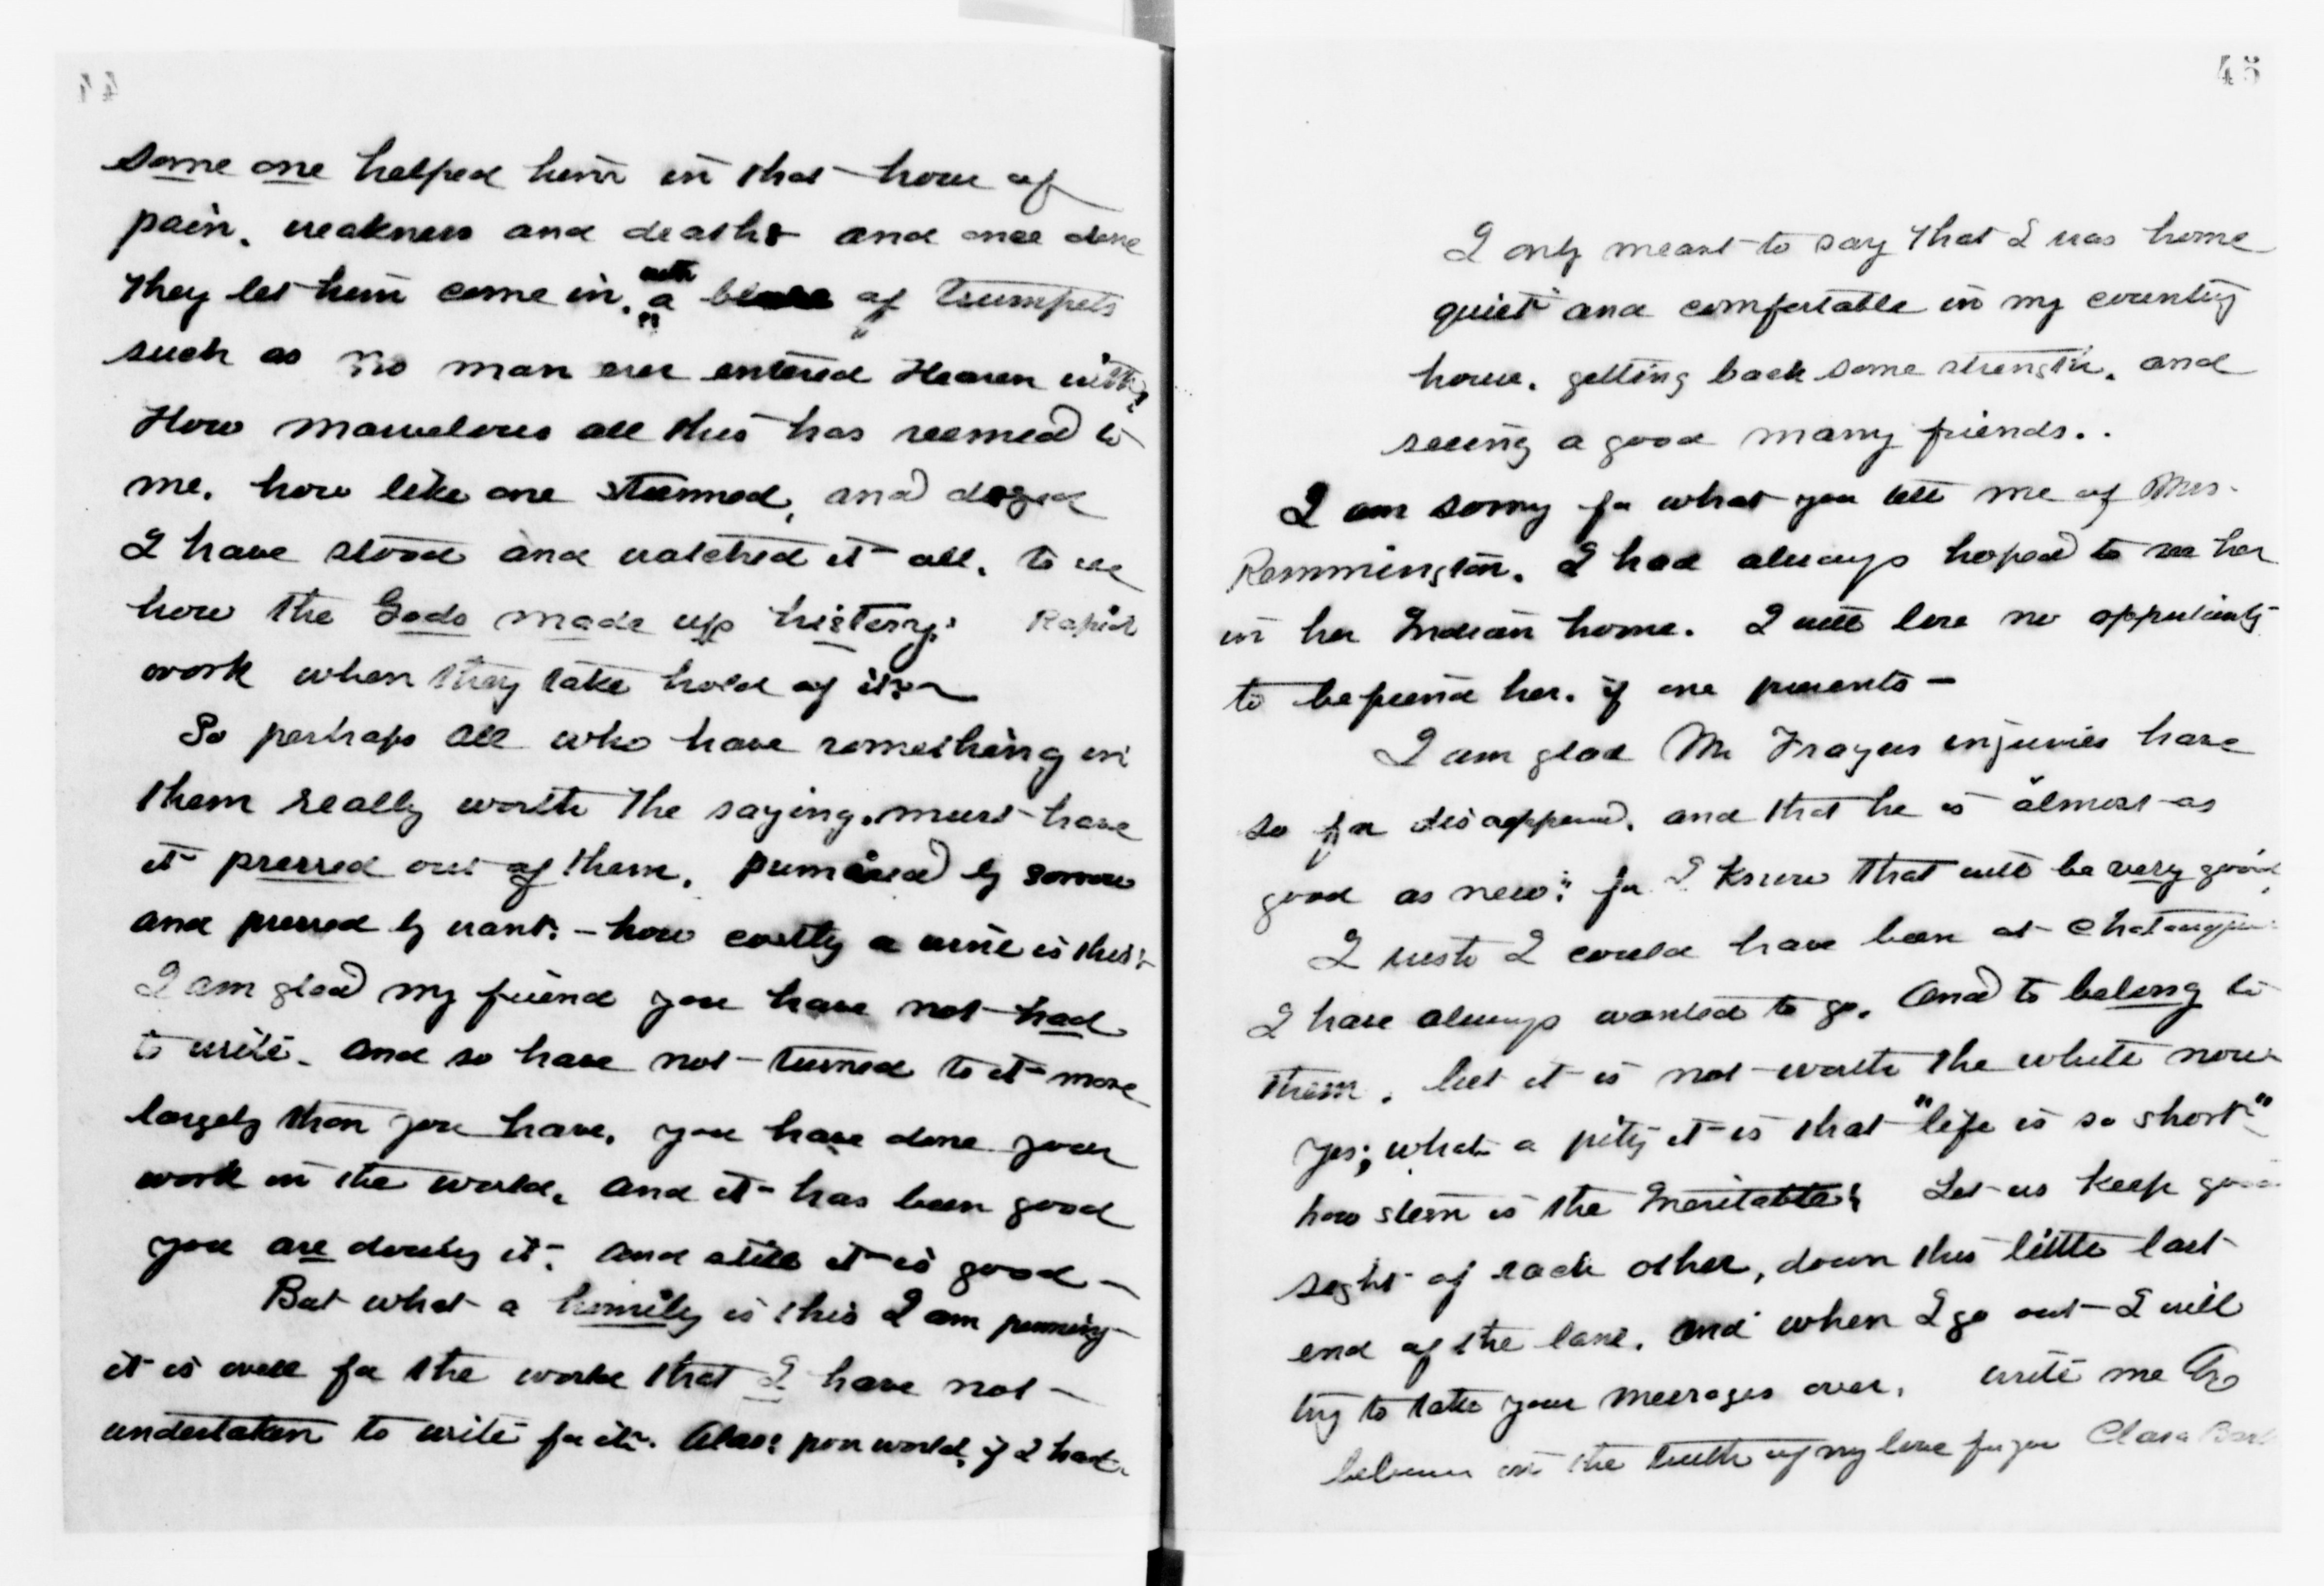 44
some one helped him in that hour of
pain, weakness and death & and once done
they let him come in, with a of trumpets
such as no man ever entered Heaven with,
How marvelous all this has seemed to
me, how like one stunned, and dazed
I have stood and watched it all, to see
how the Gods made up history. Rapid
work when they take hold of it.
So perhaps all who have something in
them really worth the saying, must have
it pressed out of them, by sorrow
and pressed by want. - how costly a wine is this!
I am glad my friend you have not had
to write. And so have not turned to it more
largely than you have, you have done your
work in the world, and it has been good
you are doing it. And still it is good -
But what a homily is this I am penning
it is well for the world that I have not
undertaken to write for it. Alas! poor world, if I had.
45
I only meant to say that I was home
quiet and comfortable in my country
house, getting back some strength, and
seeing a good many friends..
I am sorry for what you tell me of Mrs.
Remmington. I had always hoped to see her
in her Indian home. I will lose no opportunity
to befriend her, if one presents -
I am glad Mr injuries have
so far disappeared, and that he is "almost as
good as new": for I know that will be very good
I wish I could have been at
I have always wanted to go, and to belong to
them, but it is not worth the while now
Yes; what a pity it is that "life is so short"
how stern is the Inevitable! Let us keep good
sight of each other, down this little last
end of the lane, and when I go out I will
try to take your messages over. write me
in the truth of my love for you Clara Bart